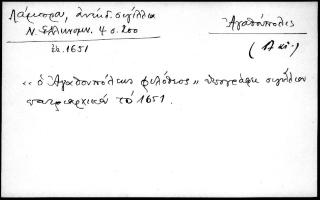 Λάμπρου, ἀνέκδ. σιγίλλια
Ν. Ἑλληνομν. 4 σ. 200
ἐν. 1651
Ἀγαθόπολις
« ὁ Ἀγαθοπόλεως Φιλόθεος » ὑπογράφει σιγίλλιον
πατριαρχικὸν τὸ 1651.